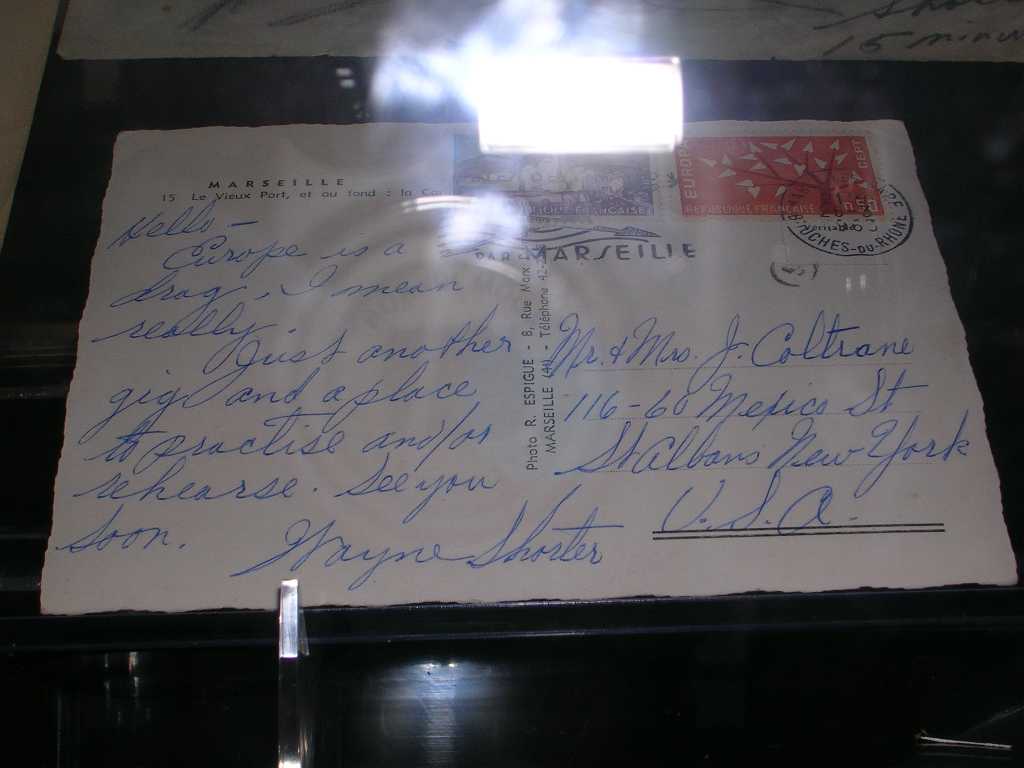 15 minu
MARSEILLE
15 Le Vieux Port, et au fond : la
Hello –
Europe is a
drag, I mean
really.
Just another
gig and a place
to practise and/or
rehearse. See you
soon.
Wayne Shorter
PAR MARSEILLE
Photo R. ESPIGUE - 8, Rue Marx
MARSEILLE - Téléphone 42
EUROPA
CEPT
REPUBLIQUE FRANÇAISE
BOUCHES-DU-RHONE
Mr. & Mrs. J. Coltrane
116-60 Mexico St
St Albans New York
U. S. A.